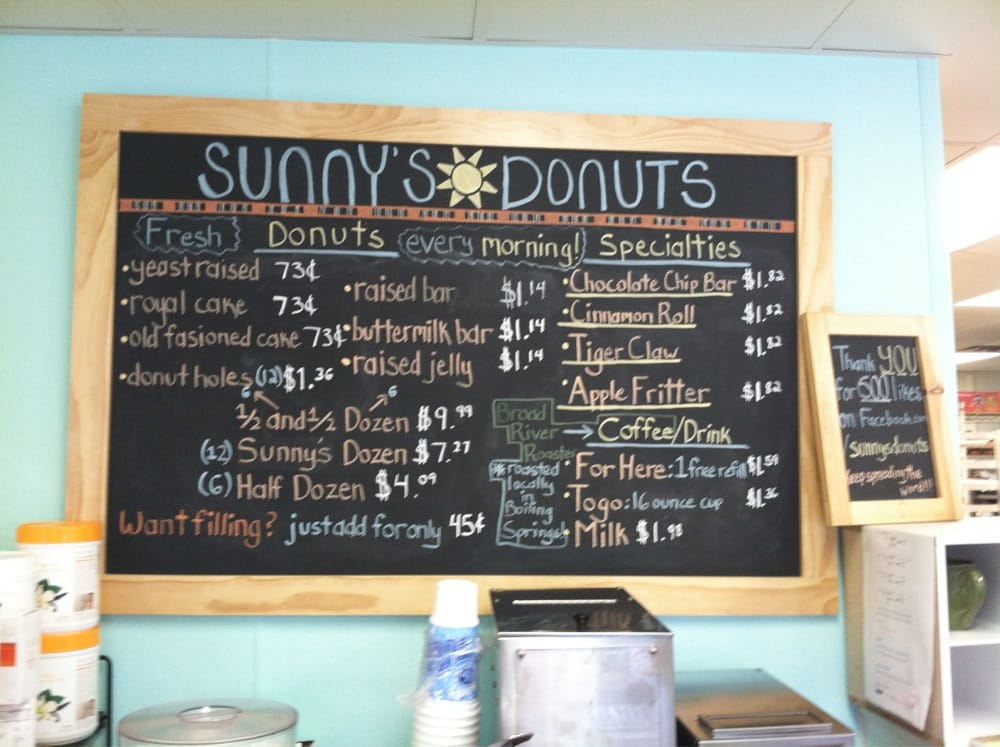 SUNNY'S DONUTS
Fresh Donuts every morning!
•yeast raised 73¢
•royal cake 73¢
•old fasioned cake 73¢
•donut holes (12) $1.36
•raised bar $1.14
•buttermilk bar $1.14
•raised jelly $1.14
6 6
1/2 and 1/2 Dozen $9.99
(12) Sunny's Dozen $7.27
(6) Half Dozen $4.09
Want filling? just add for only 45¢
Specialties
•Chocolate Chip Bar $1.82
•Cinnamon Roll $1.82
•Tiger Claw $1.82
•Apple Fritter $1.82
Broad
River
Roaster
*roasted
locally
in
Boiling
Springs!
Coffee/Drink
•For Here: 1 free refill $1.59
•Togo: 16 ounce cup $1.36
•Milk $1.98
Thank YOU
for 600 likes
on Facebook.com
/sunnysdonuts
Keep spreading the
word!!!